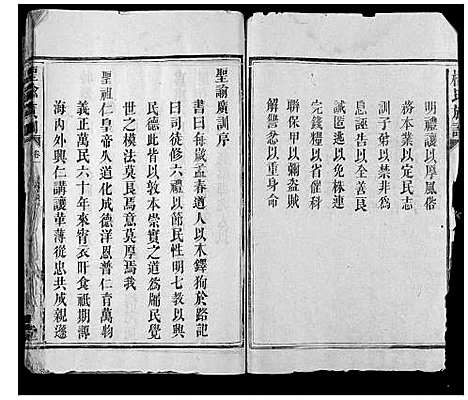 明禮讓以厚風俗
務本業以定民志
訓子弟以禁非為
息誣告以全善良
誡匿逃以免株連
完錢糧以省催科
聯保甲以弭盜賊
解讐忿以重身命
聖諭廣訓序
書曰每歲孟春遒人以木鐸狥於路記
曰司徒修六禮以節民性明七教以興
民德此皆以敦本崇實之道為牖民覺
世之模法莫良焉意莫厚焉我
聖祖仁皇帝久道化成德洋恩普仁育萬物
義正萬民六十年來宵衣旰食祇期薄
海內外興仁講讓革薄從忠共成親遜
聖諭廣訓
卷